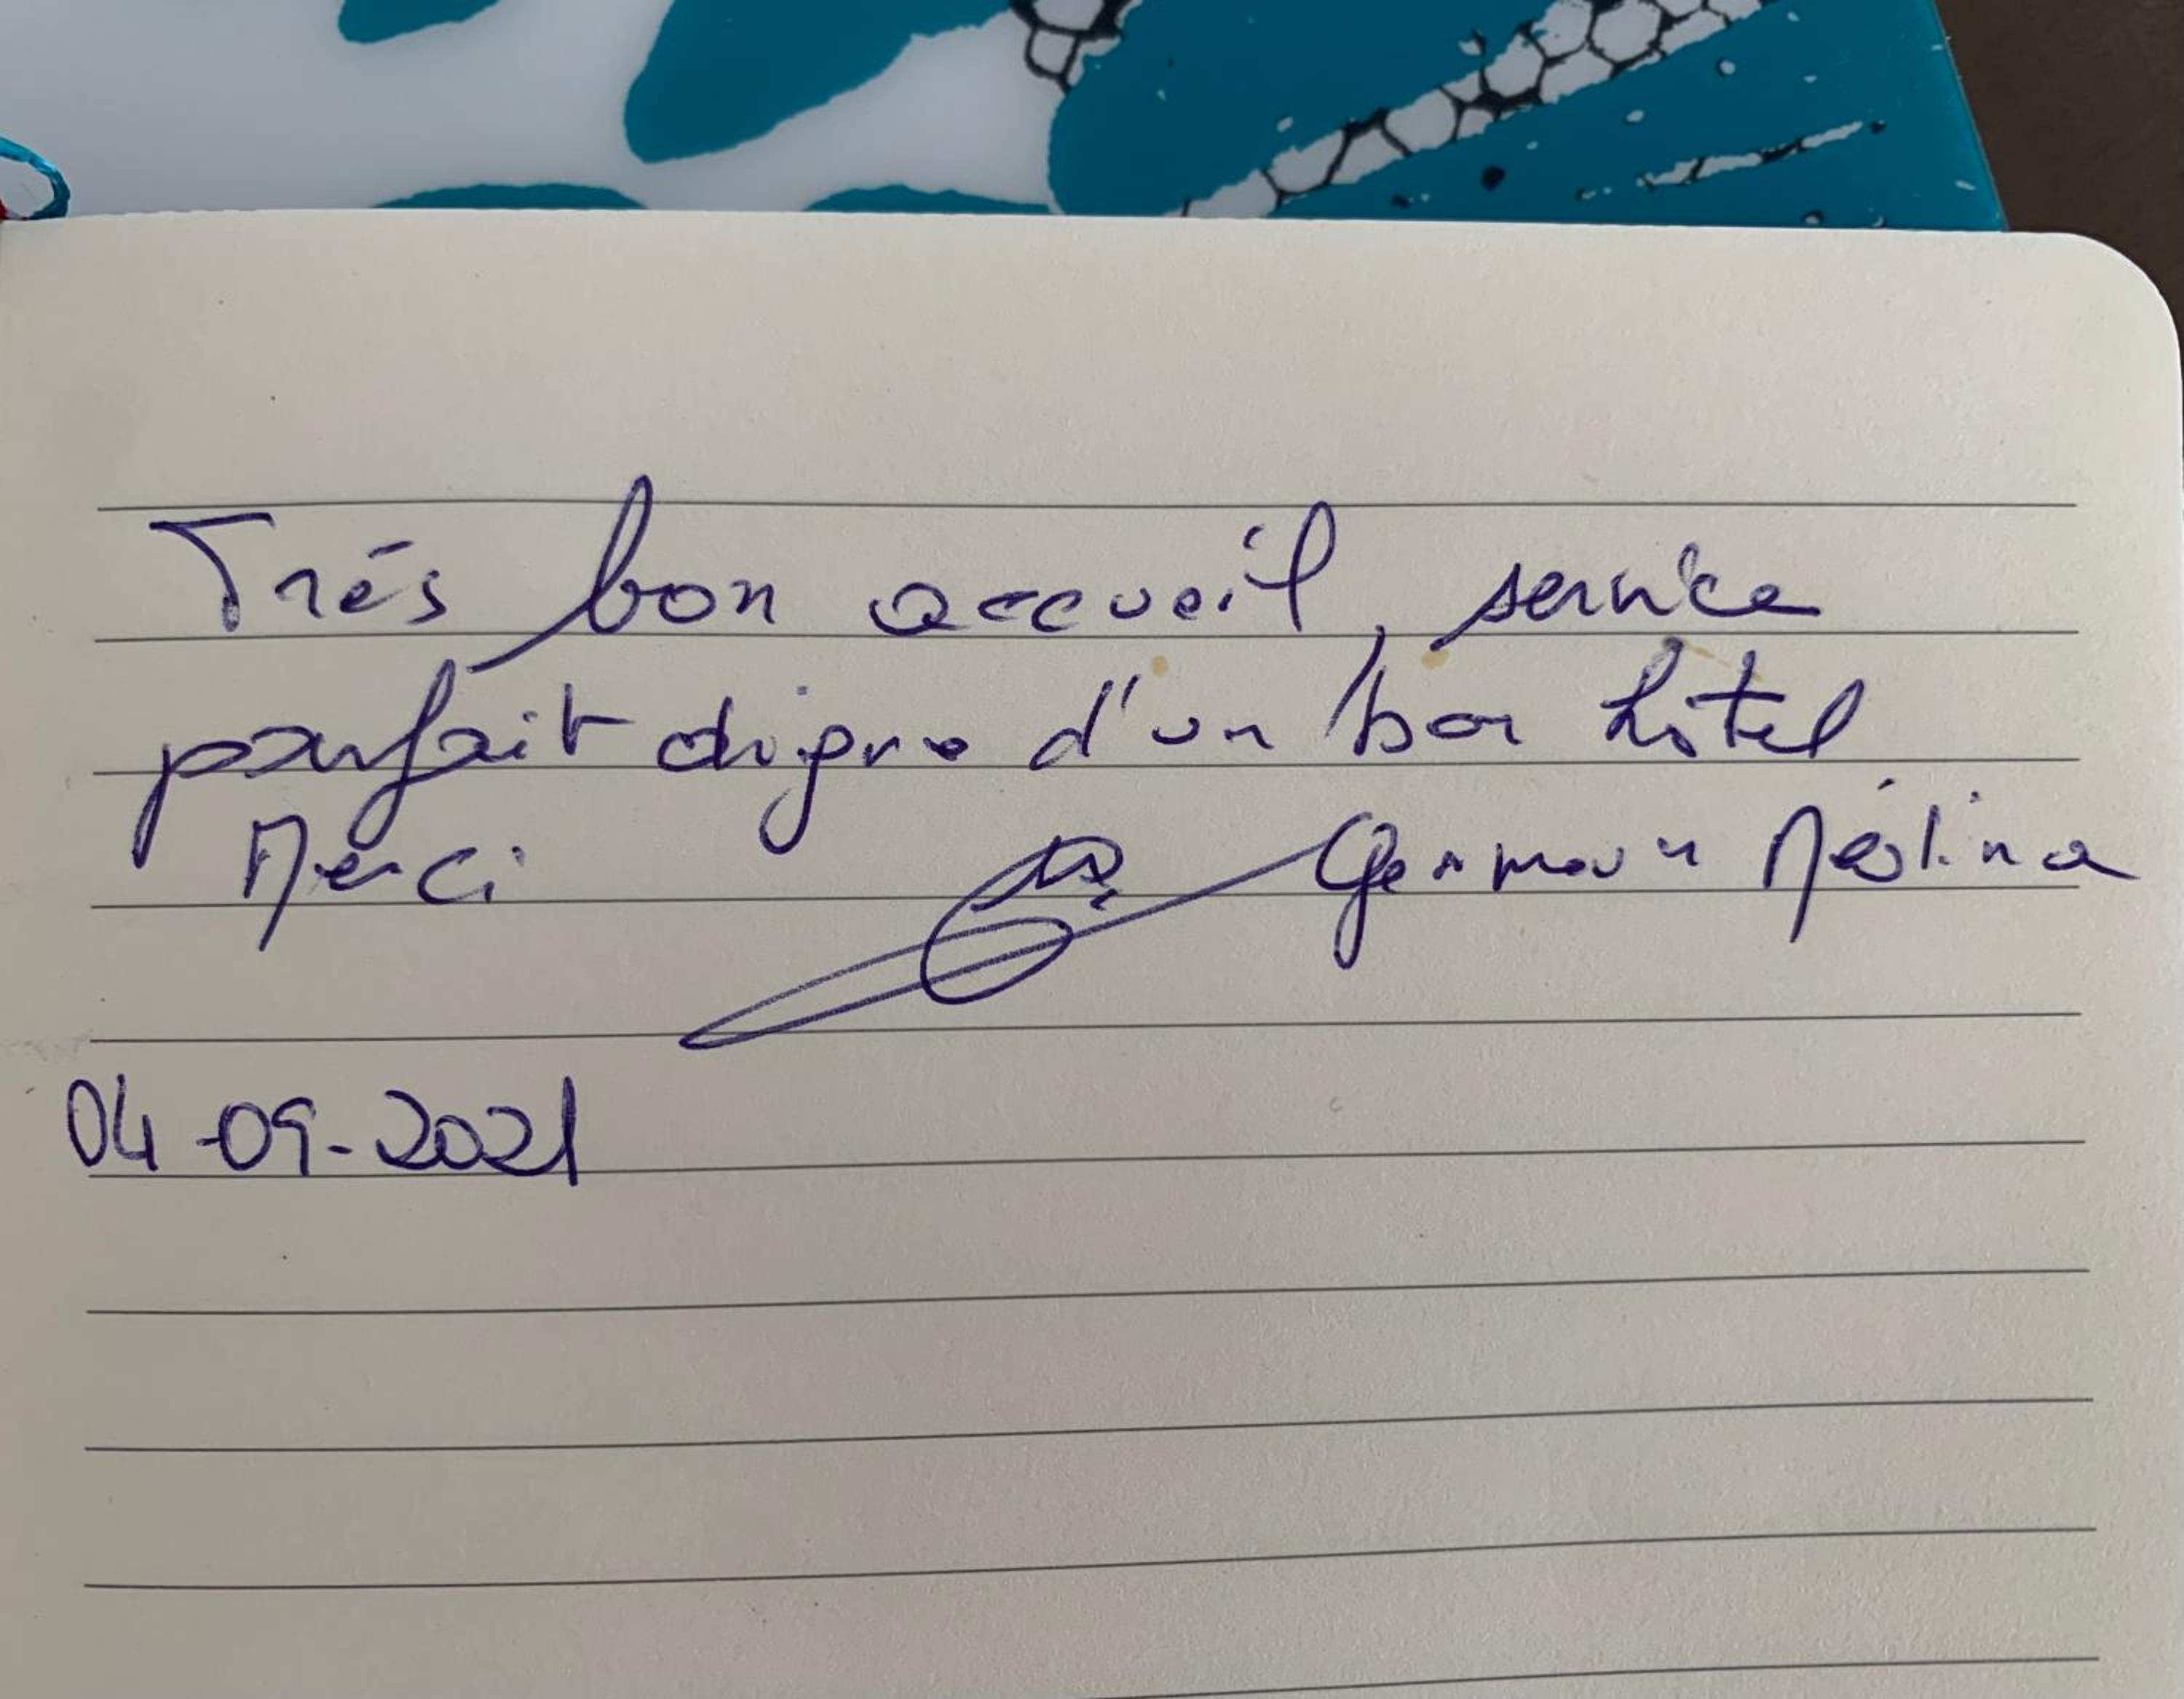 Trés bon accueil, service
parfait digne d'un bon hôtel
Merci Germain Mélina
04-09-2021